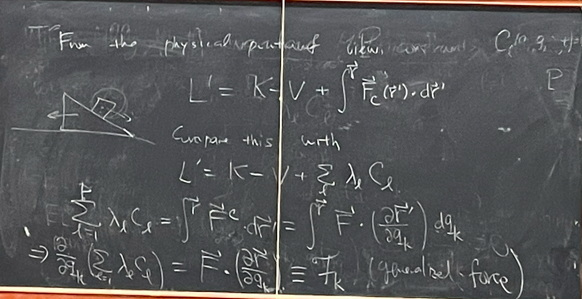 From the physical point of view C_l(q, q̇, t)=
P
L' = K - V + ∫^{r⃗} F⃗_c(r⃗')·dr⃗'
Compare this with
L' = K - V + Σ_l λ_l C_l
Σ_{l=1}^{P} λ_l C_l = ∫^{r⃗} F⃗^c · dr⃗' = ∫^{r⃗} F⃗ · (∂r⃗'/∂q_k) dq_k
⇒ ∂/∂q_k (Σ_{l=1} λ_l C_l) = F⃗ · (∂r⃗/∂q_k) ≡ F_k (generalized force)